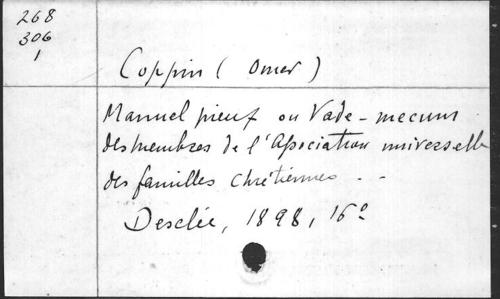 268
306
1
Coppin ( Omer )
Manuel pieux ou Vade-mecum
des membres de l'Association universelle
des familles chrétiennes . .
Desclée, 1898, 16°